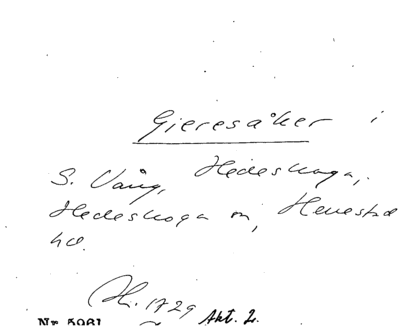 Gieresåker i
S. Vång, Hedeskoga,
Hedeskoga sn, Herrestad
hd.
Ak. 1729 Akt. 2.
Nr 5961